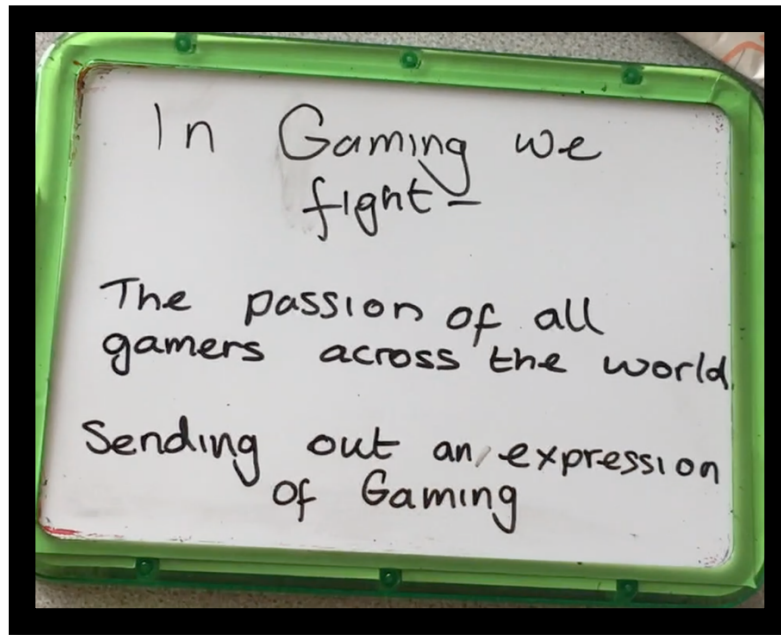 In Gaming we
fight-
The passion of all
gamers across the world
Sending out an expression
of Gaming